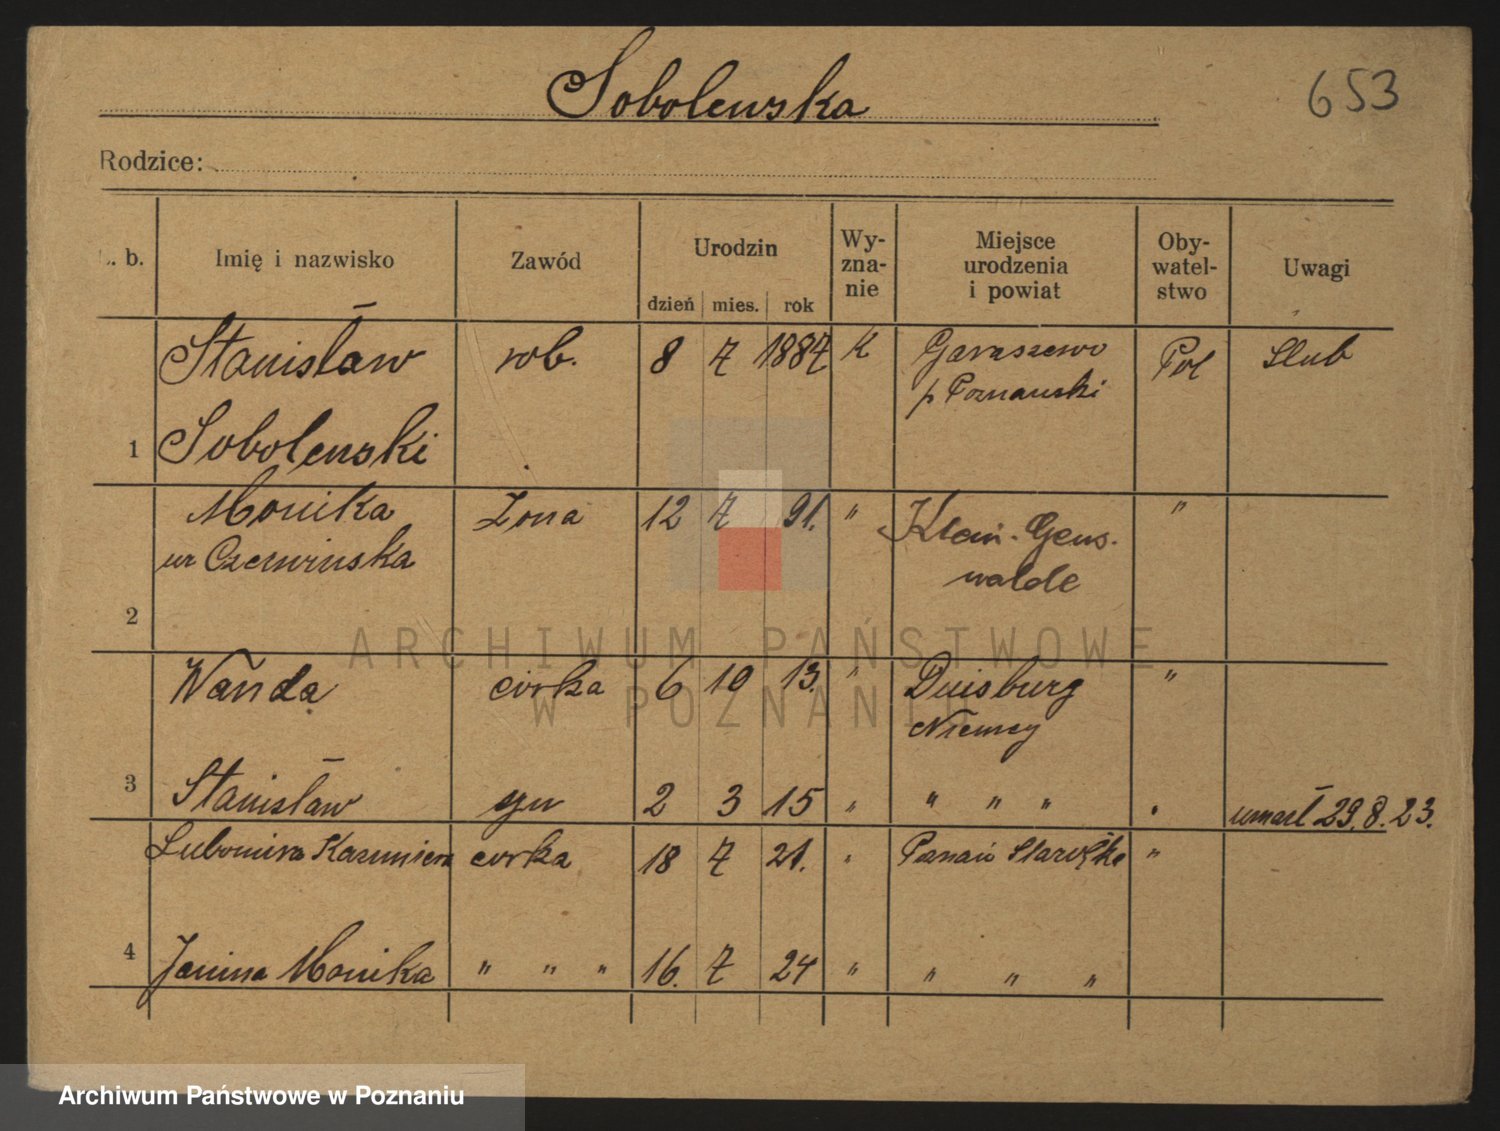 Sobolewska
653
Rodzice:
L. b. Imię i nazwisko Zawód Urodzin dzień mies. rok Wy-zna-nie Miejsce urodzenia i powiat Oby-watel-stwo Uwagi
Stanisław rob. 8 7 1887 K Garaszewo Pol Slub
p Poznański
1 Sobolewski
Monika Żona 12 7 91. " Klein-Gens- "
ur Czerwinska walde
2
Wanda córka 6 10 13. " Duisburg "
Niemcy
3 Stanisław syn 2 3 15 " " " " " umarł 29.8.23.
Lubomira Kazimiera córka 18 7 21. " Poznań "
4 Janina Monika " " " 16. 7 24 " " " "
ARCHIWUM PAŃSTWOWE
W POZNANIU
Archiwum Państwowe w Poznaniu